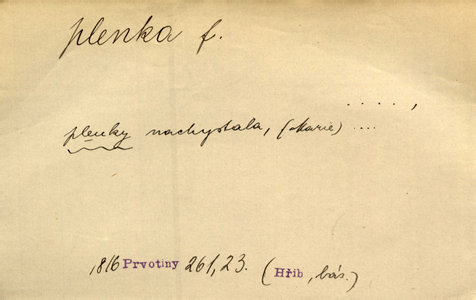 plenka f.
. . . . . ,
plenky nachystala, (Marie) ....
1816 Prvotiny 261,23. (Hřib, bás.)